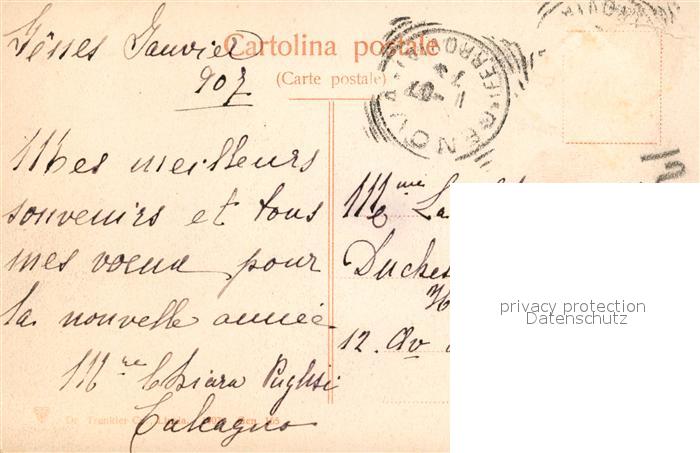 Gênes Janvier
907
Cartolina postale
(Carte postale)
GENOVA FERROVIA
Mes meilleurs
souvenirs et tous
mes voeux pour
la nouvelle année
Chiara Puglisi
Calcagno
Mme La
Duches
12. Av
privacy protection
Datenschutz
Dr. Trenkler Co.